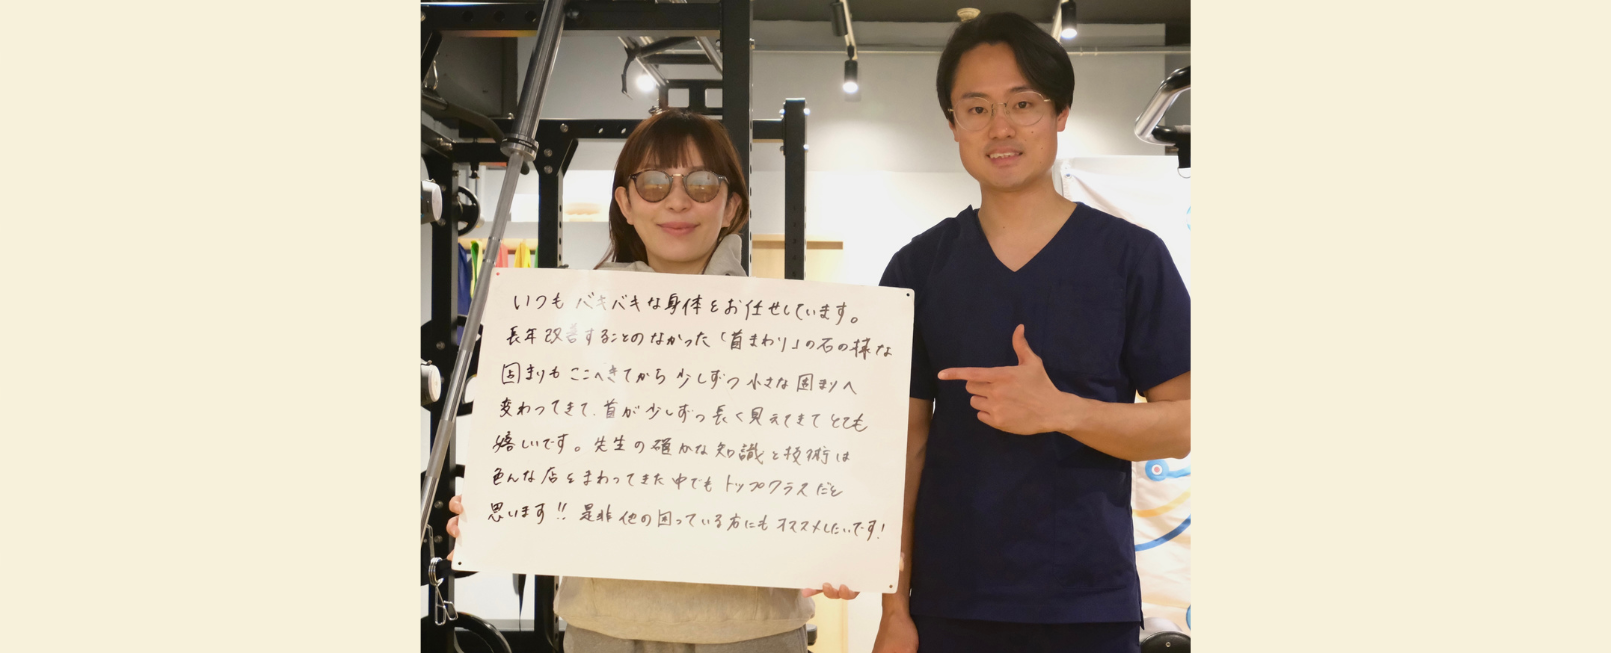 いつも バキバキな身体をお任せしています。
長年改善することのなかった「首まわり」の石の様な
固まりもここへきてから少しずつ小さな固まりへ
変わってきて、首が少しずつ長く見えてきてとても
嬉しいです。先生の確かな知識と技術は
色んな店をまわってきた中でもトップクラスだと
思います!! 是非他の困っている方にもオススメしたいです!